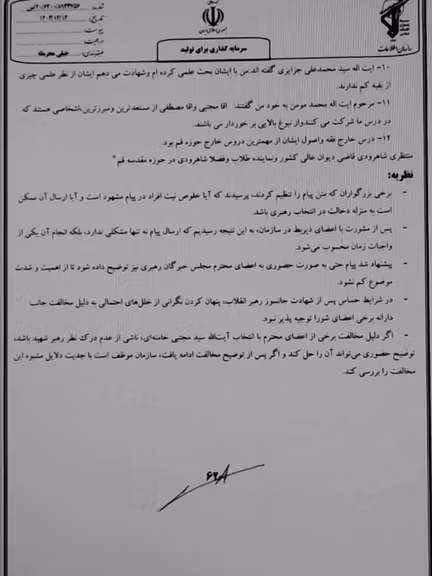 جمهوری اسلامی ایران
سرمایه گذاری برای تولید
سازمان اطلاعات
تاریخ: ۱۴۰۴/۱۲/۱۴
پیوست:
طبقه‌بندی: خیلی محرمانه
۱۰- آیت اله سید محمدعلی جزایری گفته اند:من با ایشان بحث علمی کرده ام وشهادت می دهم ایشان از نظر علمی چیزی
از بقیه کم ندارند.
۱۱- مرحوم آیت اله محمد مومن به خود من گفتند: اقا مجتبی واقا مصطفی از مستعدترین ومبرزترین‌باشخاصی هستند که
در درس ما شرکت می کنندواز نبوغ بالایی بر خوردار می باشند.
۱۲- درس خارج فقه واصول ایشان از مهمترین دروس خارج حوزه قم بود.
منتظری شاهرودی قاضی دیوان عالی کشور ونماینده طلاب وفضلا شاهرودی در حوزه مقدسه قم"
نظریه:
- برخی بزرگواران که متن پیام را تنظیم کردند، پرسیدند که آیا خلوص نیت افراد در پیام مشهود است و آیا ارسال آن ممکن
است به منزله دخالت در انتخاب رهبری باشد.
- پس از مشورت با اعضای ذیربط در سازمان، به این نتیجه رسیدیم که ارسال پیام نه تنها مشکلی ندارد، بلکه انجام آن یکی از
واجبات زمان محسوب می‌شود.
- پیشنهاد شد پیام حتی به صورت حضوری به اعضای محترم مجلس خبرگان رهبری نیز توضیح داده شود تا از اهمیت و شدت
موضوع کم نشود.
- در شرایط حساس پس از شهادت جانسوز رهبر انقلاب، پنهان کردن نگرانی از خلل‌های احتمالی به دلیل مخالفت جانب
دارانه برخی اعضای شورا توجیه پذیر نبود.
- اگر دلیل مخالفت برخی از اعضای محترم با انتخاب آیت‌الله سید مجتبی خامنه‌ای، ناشی از عدم درک نظر رهبر شهید باشد،
توضیح حضوری می‌تواند آن را حل کند و اگر پس از توضیح مخالفت ادامه یافت، سازمان موظف است با جدیت دلایل مشبوه این
مخالفت را بررسی کند.